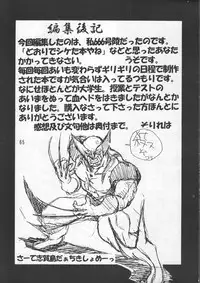 編集後記
今回編集したのは、私666号院だったのです。
「どおりでシケた本やね」などと思ったあなた
かかってきなさい。 うそです。
毎回毎回あいも変わらずギリギリの日程で制作
された本ですが気合いは入ってるつもりです。
なにせほとんどが大学生。授業とテストの
あいまをぬって血ヘドをはきましたがなんとか
なりました。購入なさって下さった方ほんとに
ありがとうございます。
感想及び文句他は奥付まで。 それりは
55